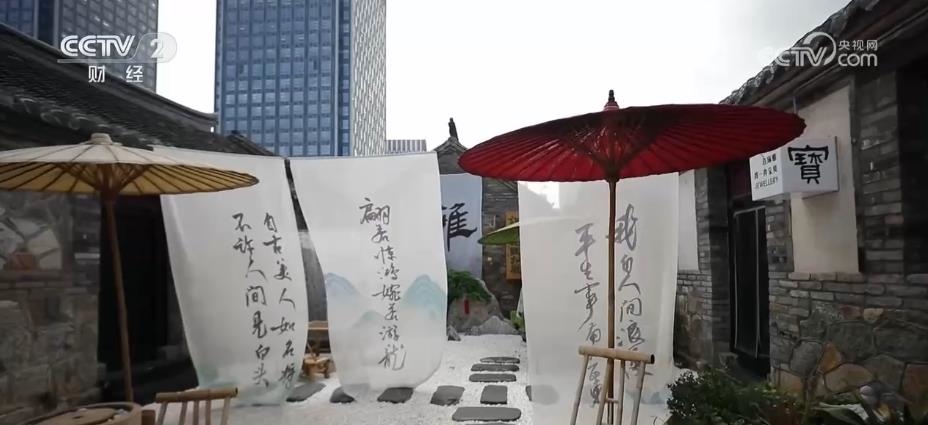 CCTV 2
财经
CCTV
央视网
com
自古美人如名将
不许人间见白头
翩若惊鸿婉若游龙
雅
我自人间浪
平生事南
寶
JEWELLERY